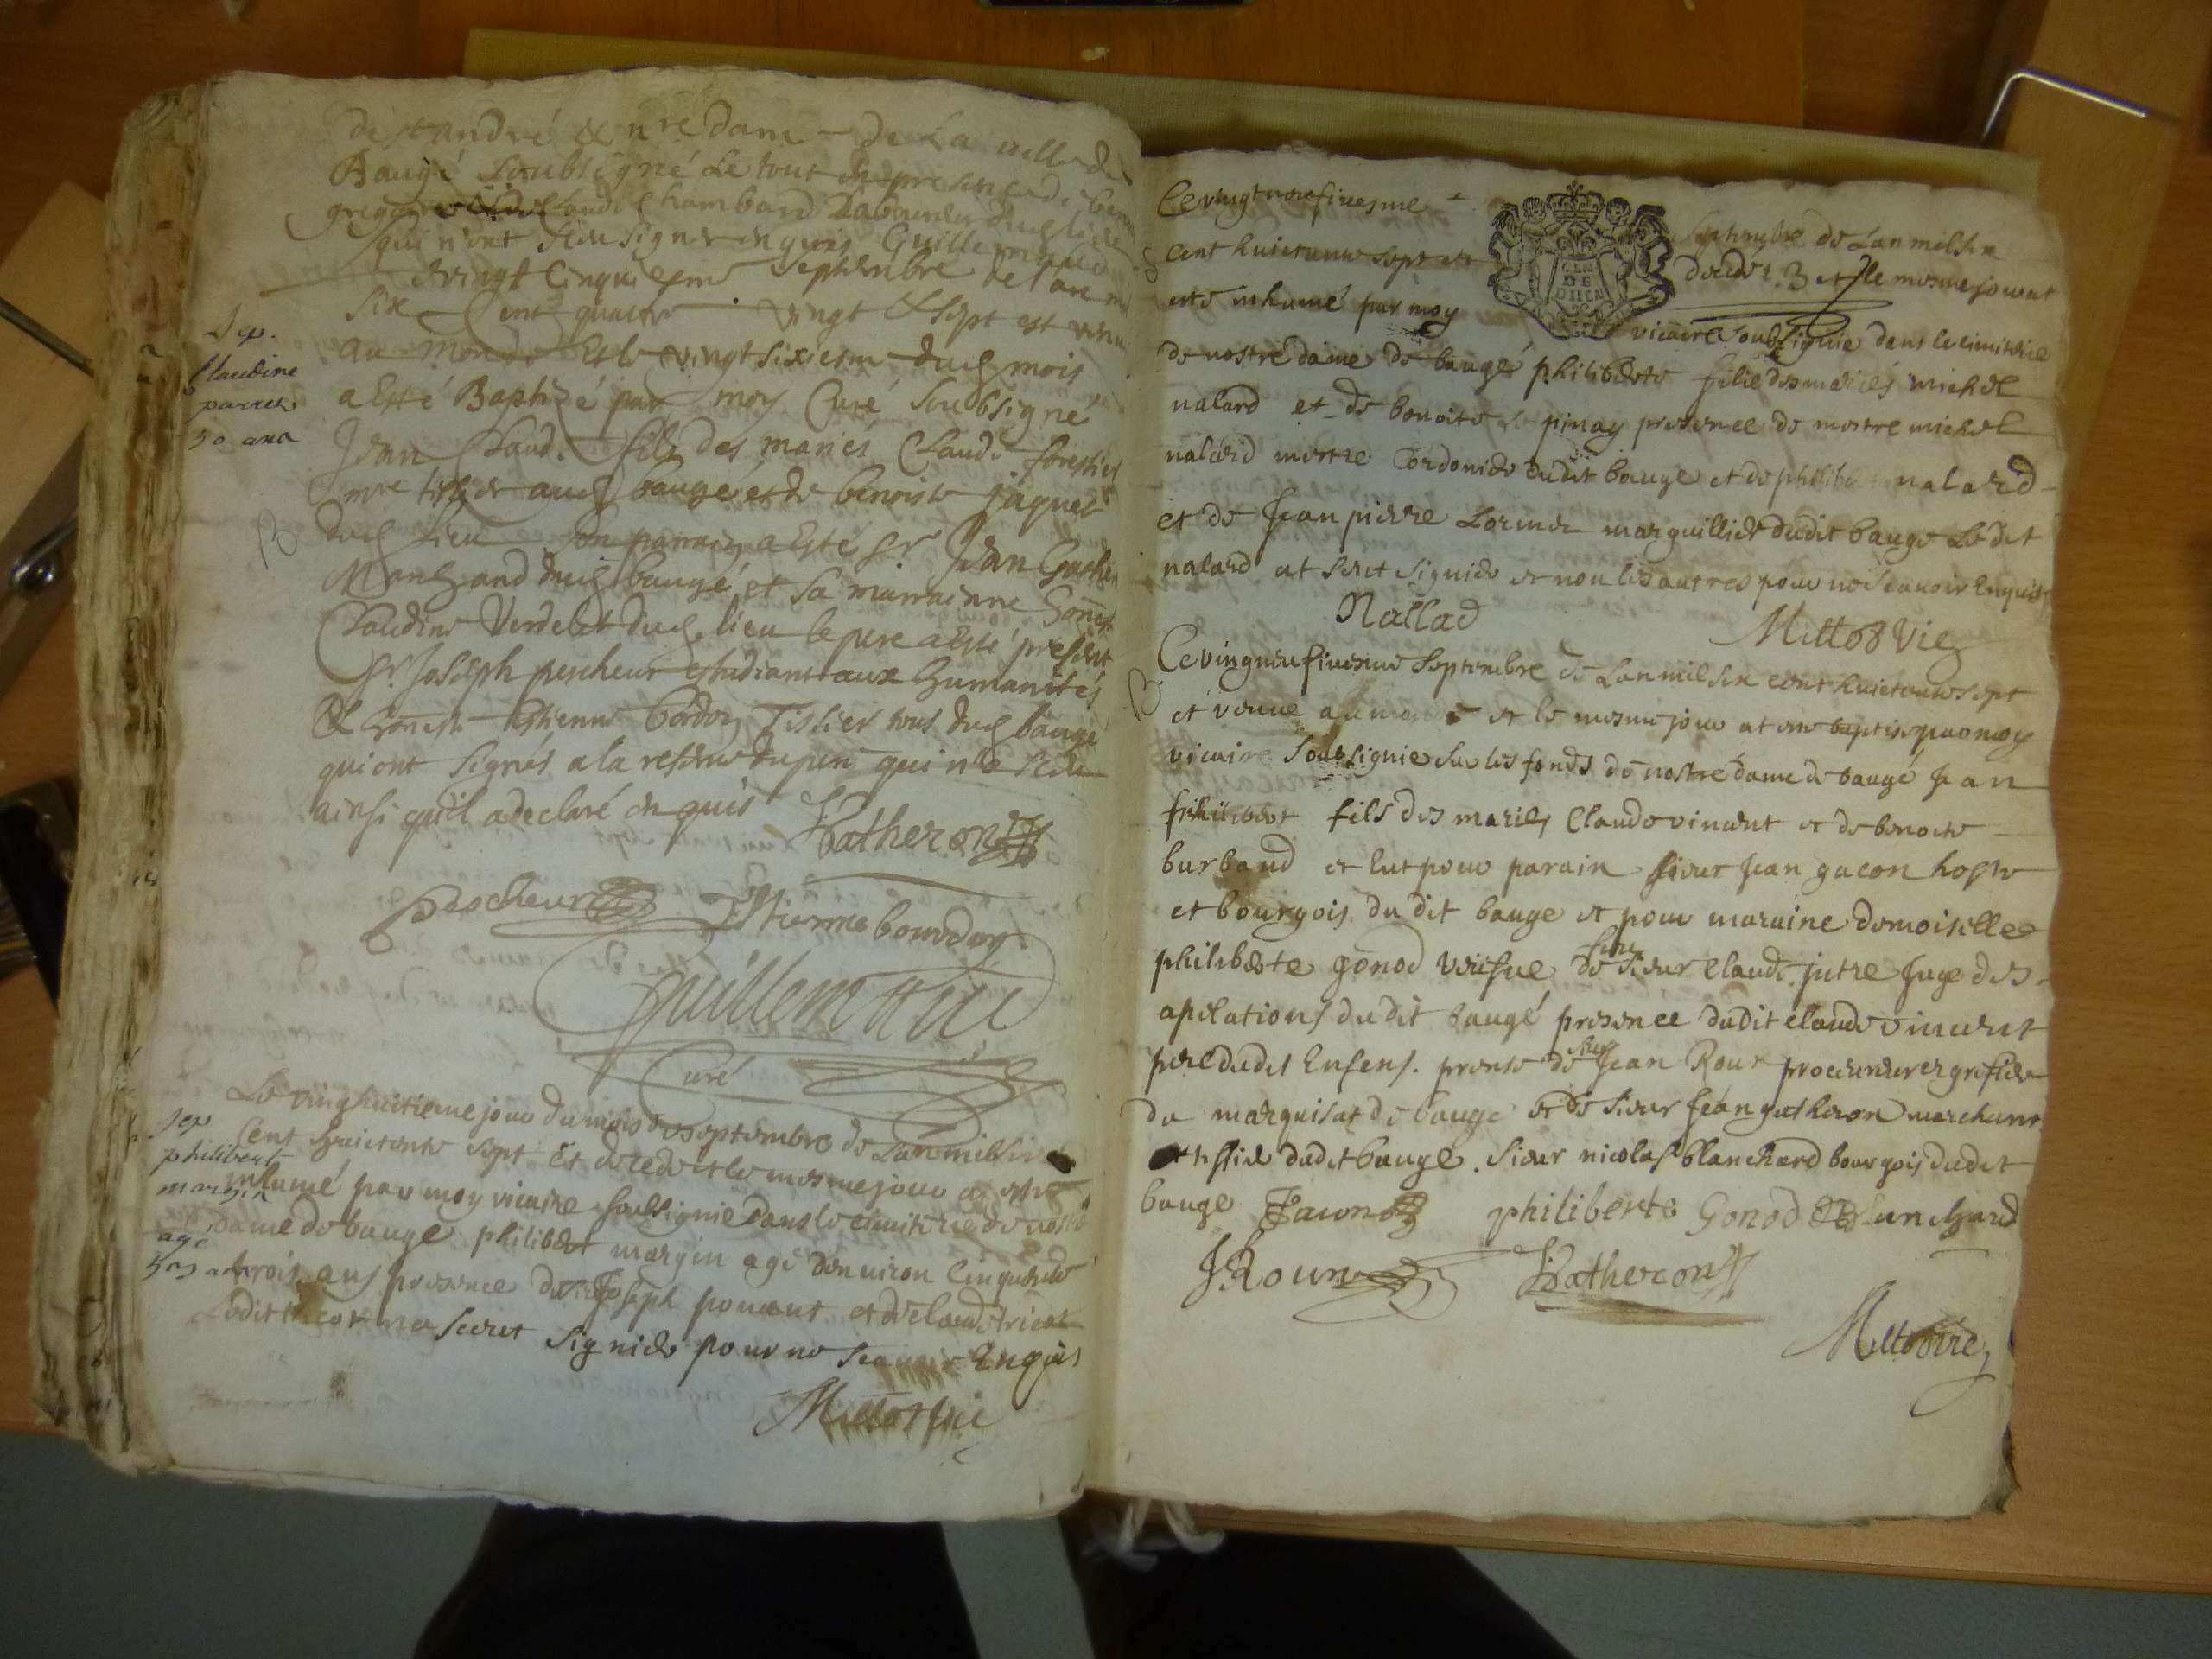 de st andré & nre dame de La ville de
Baugé soubsigné Le tout en presence de
gregoire Claude Chambard Laboureur
qui n'ont sceu signer enquis Guillemaut
Le vingt Cinquiesme septembre de l'an mil
six Cent quattre vingt & sept est venu
au monde & le vingt sixiesme dud mois
a Esté Baptizé par moy Curé soubsigné
Jean Claude fils des mariés Claude forestier
mre tissier aud baugé et de benoiste jaquet
dud lieu son parrain a Esté sr Jean Gatheron
Marchand dud baugé et sa marrainne honeste
Claudine Verdelet dud lieu le pere a Esté present
sr Joseph percheur estudiant aux humanités
& honest Estienne bordon Tissier tous dud baugé
qui ont signés a la reserve du pere qui n'a sceu
ainsi qu'il a declaré enquis JGatheron
pescheur Estienne bourdon
Guillemaut
Curé
Sep.
Claudine
parret
50 ans
Le vinghuitieme jour du mois de septembre de Lan mil six
Cent huictente sept Et decedé et le mesme jour a esté
inhumé par moy vicaire soubsignie dans le cimitiere de nostre
dame de bauge philibert margin agé denviron cinquente
trois ans presence de sr Joseph ponant et de claude tricot
Ledit tricot na sceut signide pour ne scavoir Enquis
Mittot vic
Sep
philibert
margin
agé
53 ans
Ce vingt noufiuesme septembre de Lan mil six
cent huictente sept est decedé et le mesme jour at
este inhumé par moy vicaire soubsignie dens le cimitiere
de nostre dame de baugé philiberte filie des mariés michel
nalard et de benoite pinay presence de mestre michel
nalard mestre Cordonide dudit bauge et de philibe nalard
et de Jean pierre Lormer marguillier dudit bauge Ledit
nalard at seut signide et non les autres pour ne scavoir Enquis
Nallad Mittot Vic
B
Ce vingneufiuesme septembre de Lan mil six cent huictente sept
et venue au monde et le mesme jour at este baptise par moy
vicaire soubsignie sur les fonds de nostre dame de baugé Jean
philibert fils des maries Claude vincent et de benoite
burband et Eut pour parain sieur Jean gacon hoste
et bourgois dudit bauge et pour maraine demoiselle
philiberte gonod veufue de feu sieur claude jutre Juge des
apelations dudit baugé presence dudit claude vincent
pere dudit Enfent. presence de sieur Jean Roux procureur et grefier
du marquisat de bauge et de sieur Jean gatheron marchant
dudit bauge. sieur nicolas blanchard bourgois dudit
bauge Jacon philiberte Gonod Blanchard
JRoux JGatheron
Mittot vic
B